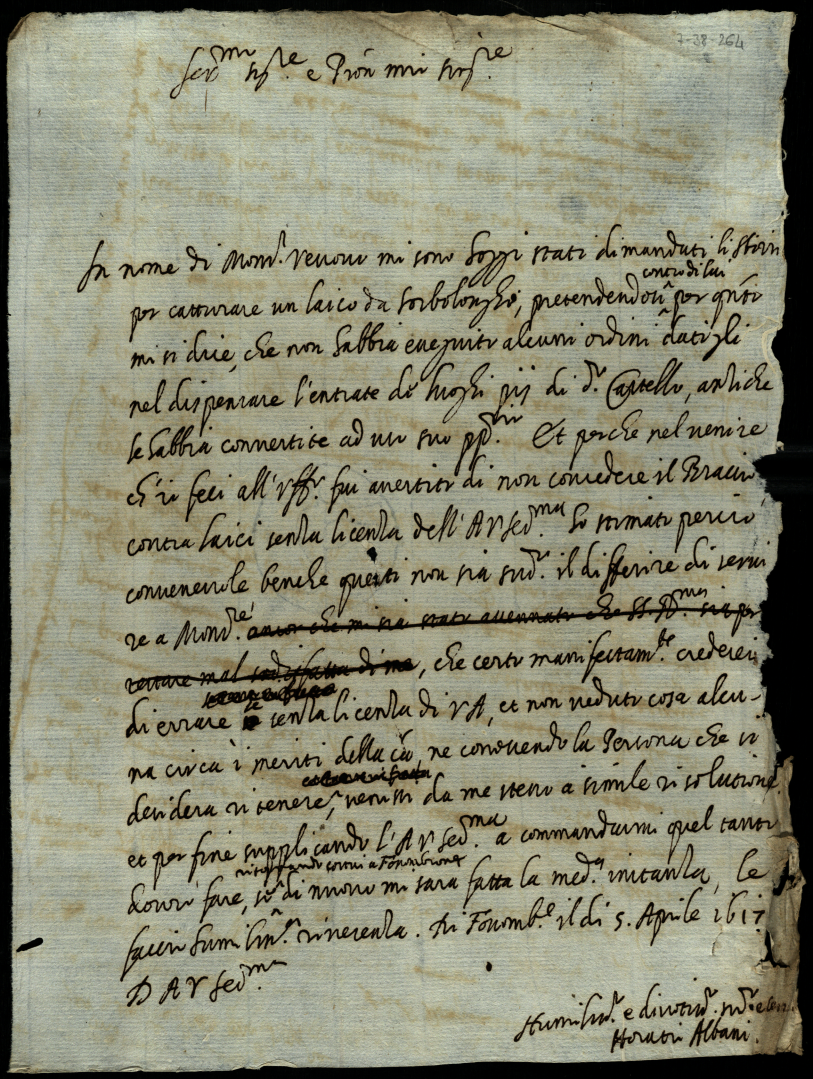 7-38-264
Ser.mo sig.re e Pron mio sig.re
In nome di Mons.r Vescovo mi sono hoggi stati dimandati li sbirri
contro di lui
per catturare un laico da Sorbolongho, pretendendosi per q.nto
mi si dice, che non habbia eseguito alcuni ordini datigli
nel dispensare l'entrate de luoghi pij di d.o Castello, anzi che
le habbia convertite ad uso suo pp.rio Et perche nel venire
ch'io feci all'Uff.o fui avertito di non concedere il Braccio
contra laici senza licenza dell'A V Ser.ma ho stimato perciò
convenevole benche questi non sia sud.o il differire di servi
re a Mons.re ancor che mi sia stato accennato che SS. R.ma sia per
restare mal sodisfatta di me, che certo manifestam.te crederei
di errare se senza licenza di V A, et non veduto cosa alcu-
na circa i meriti della ca, ne conoscendo la Persona che si
desidera ritenere, venissi da me stesso a simile risolutione
et per fine supplicando l'A V Ser.ma a commandarmi quel tanto
ritornando costui a Fossombrone
dovrò fare, se di nuovo mi sara fatta la med.a instanza, le
faccio humiliss.a riverenza. Di Fossomb.e il di 5. Aprile 1617
D A V Ser.ma
Humiliss.o e divotiss.o
Horatio Albani.